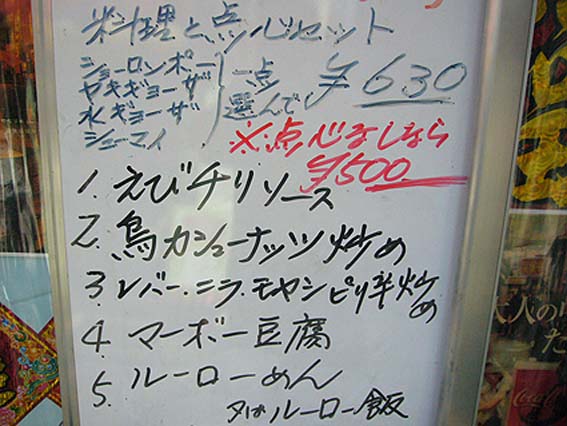 料理と点心セット
ショーロンポー
ヤキギョーザ
水ギョーザ
シューマイ
一点
選んで
¥630
※点心なしなら
¥500
1. えびチリソース
2. 鳥カシューナッツ炒め
3. レバー・ニラ・モヤシピリ辛炒め
4 マーボー豆腐
5. ルーローめん
又はルーロー飯
大人の
た